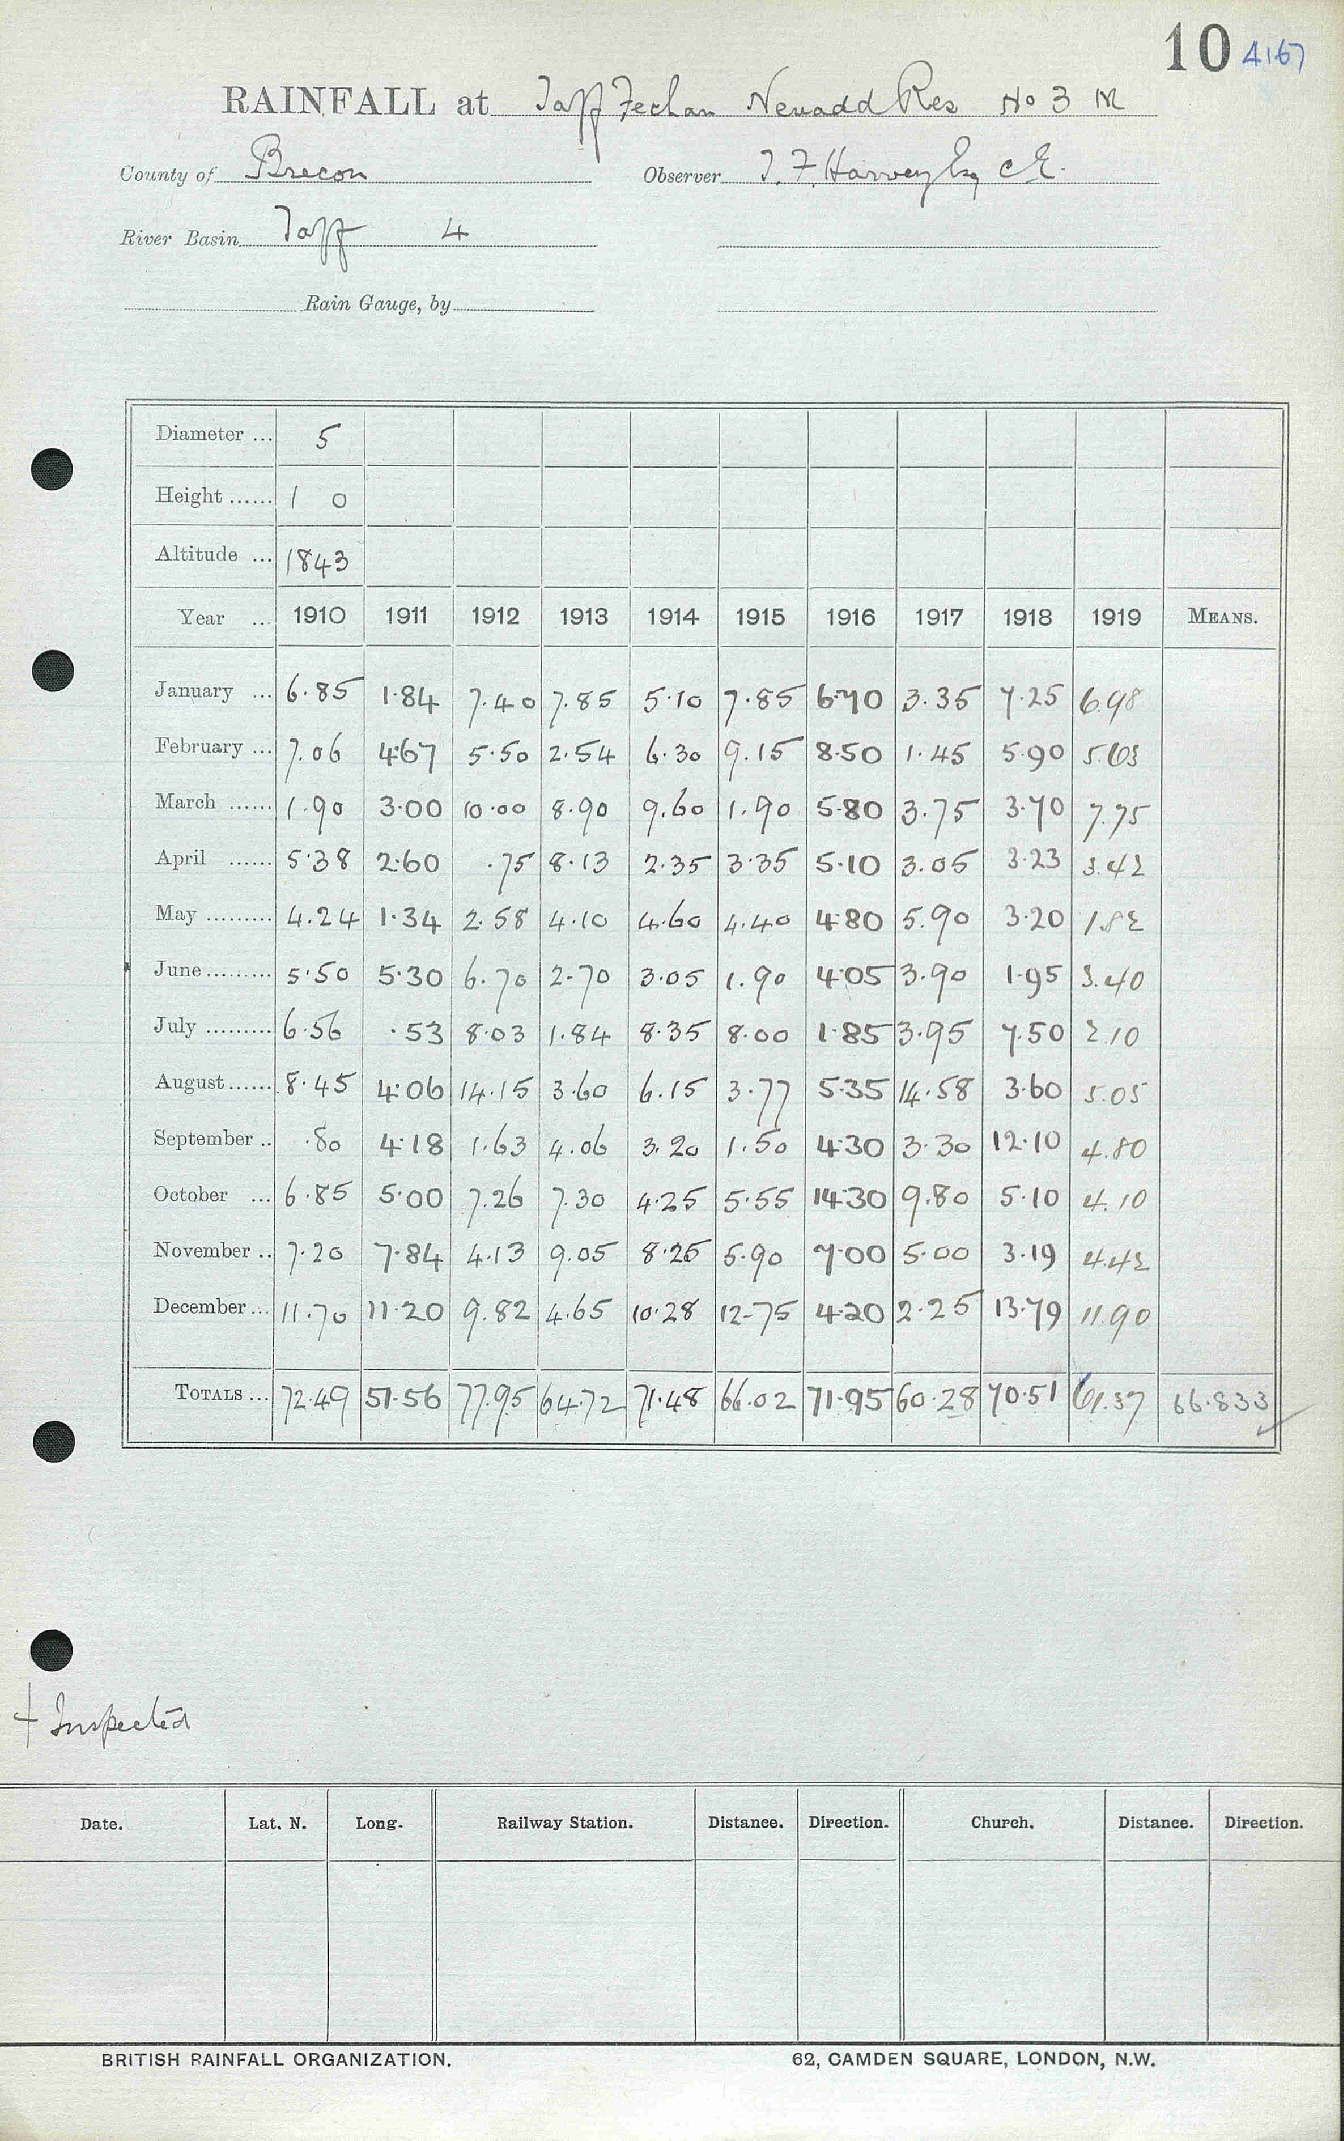 10 4167
RAINFALL at Taff Fechan Neuadd Res No 3 M
County of Brecon Observer T. F. Harvey Esq C.E.
River Basin Taff 4
Rain Gauge, by
Diameter ... 5
Height ...... 1 0
Altitude ... 1843
Year ... 1910 1911 1912 1913 1914 1915 1916 1917 1918 1919 MEANS.
January ... 6.85 1.84 7.40 7.85 5.10 7.85 6.70 3.35 7.25 6.98
February ... 7.06 4.67 5.50 2.54 6.30 9.15 8.50 1.45 5.90 5.63
March ...... 1.90 3.00 10.00 8.90 9.60 1.90 5.80 3.75 3.70 7.75
April ...... 5.38 2.60 .75 8.13 2.35 3.35 5.10 3.05 3.23 3.42
May ......... 4.24 1.34 2.58 4.10 4.60 4.40 4.80 5.90 3.20 1.82
June ......... 5.50 5.30 6.70 2.70 3.05 1.90 4.05 3.90 1.95 3.40
July ......... 6.56 .53 8.03 1.84 8.35 8.00 1.85 3.95 7.50 2.10
August ...... 8.45 4.06 14.15 3.60 6.15 3.77 5.35 14.58 3.60 5.05
September .. .80 4.18 1.63 4.06 3.20 1.50 4.30 3.30 12.10 4.80
October ... 6.85 5.00 7.26 7.30 4.25 5.55 14.30 9.80 5.10 4.10
November .. 7.20 7.84 4.13 9.05 8.25 5.90 7.00 5.00 3.19 4.42
December ... 11.70 11.20 9.82 4.65 10.28 12.75 4.20 2.25 13.79 11.90
TOTALS ... 72.49 51.56 77.95 64.72 71.48 66.02 71.95 60.28 70.51 61.37 66.833
+ Inspected
Date. Lat. N. Long. Railway Station. Distance. Direction. Church. Distance. Direction.
BRITISH RAINFALL ORGANIZATION. 62, CAMDEN SQUARE, LONDON, N.W.